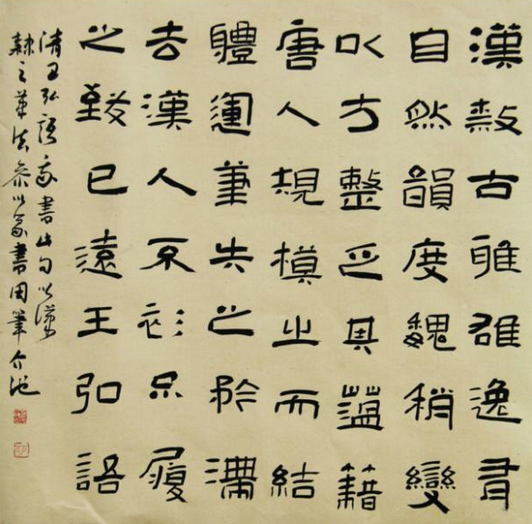 漢隸古雅雄逸有
自然韻度魏稍變
以方整乏其蘊藉
唐人規模之而結
體運筆失之矜滯
去漢人不衫不履
之致已遠王弘語
清王弘語書此句以漢
隸之筆法參以篆書用筆介池